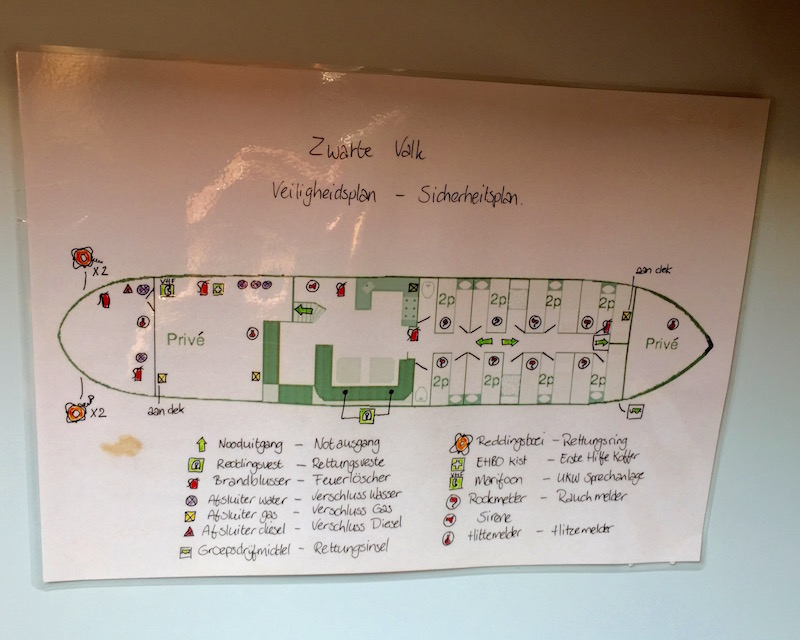 Zwarte Valk
Veiligheidsplan - Sicherheitsplan.
x2
VHF
aan dek
2p 2p 2p 2p
Privé
Privé
2p 2p 2p 2p
x2
aan dek
Nooduitgang - Notausgang
Reddingsvest - Rettungsveste
Brandblusser - Feuerlöscher
Afsluiter water - Verschluss Wasser
Afsluiter gas - Verschluss Gas
Afsluiter diesel - Verschluss Diesel
Groepsdrijfmiddel - Rettungsinsel
Reddingsboei - Rettungsring
EHBO kist - Erste Hilfe Koffer
VHF Marifoon - UKW Sprechanlage
Rookmelder - Rauchmelder
Sirene
Hittemelder - Hitzemelder